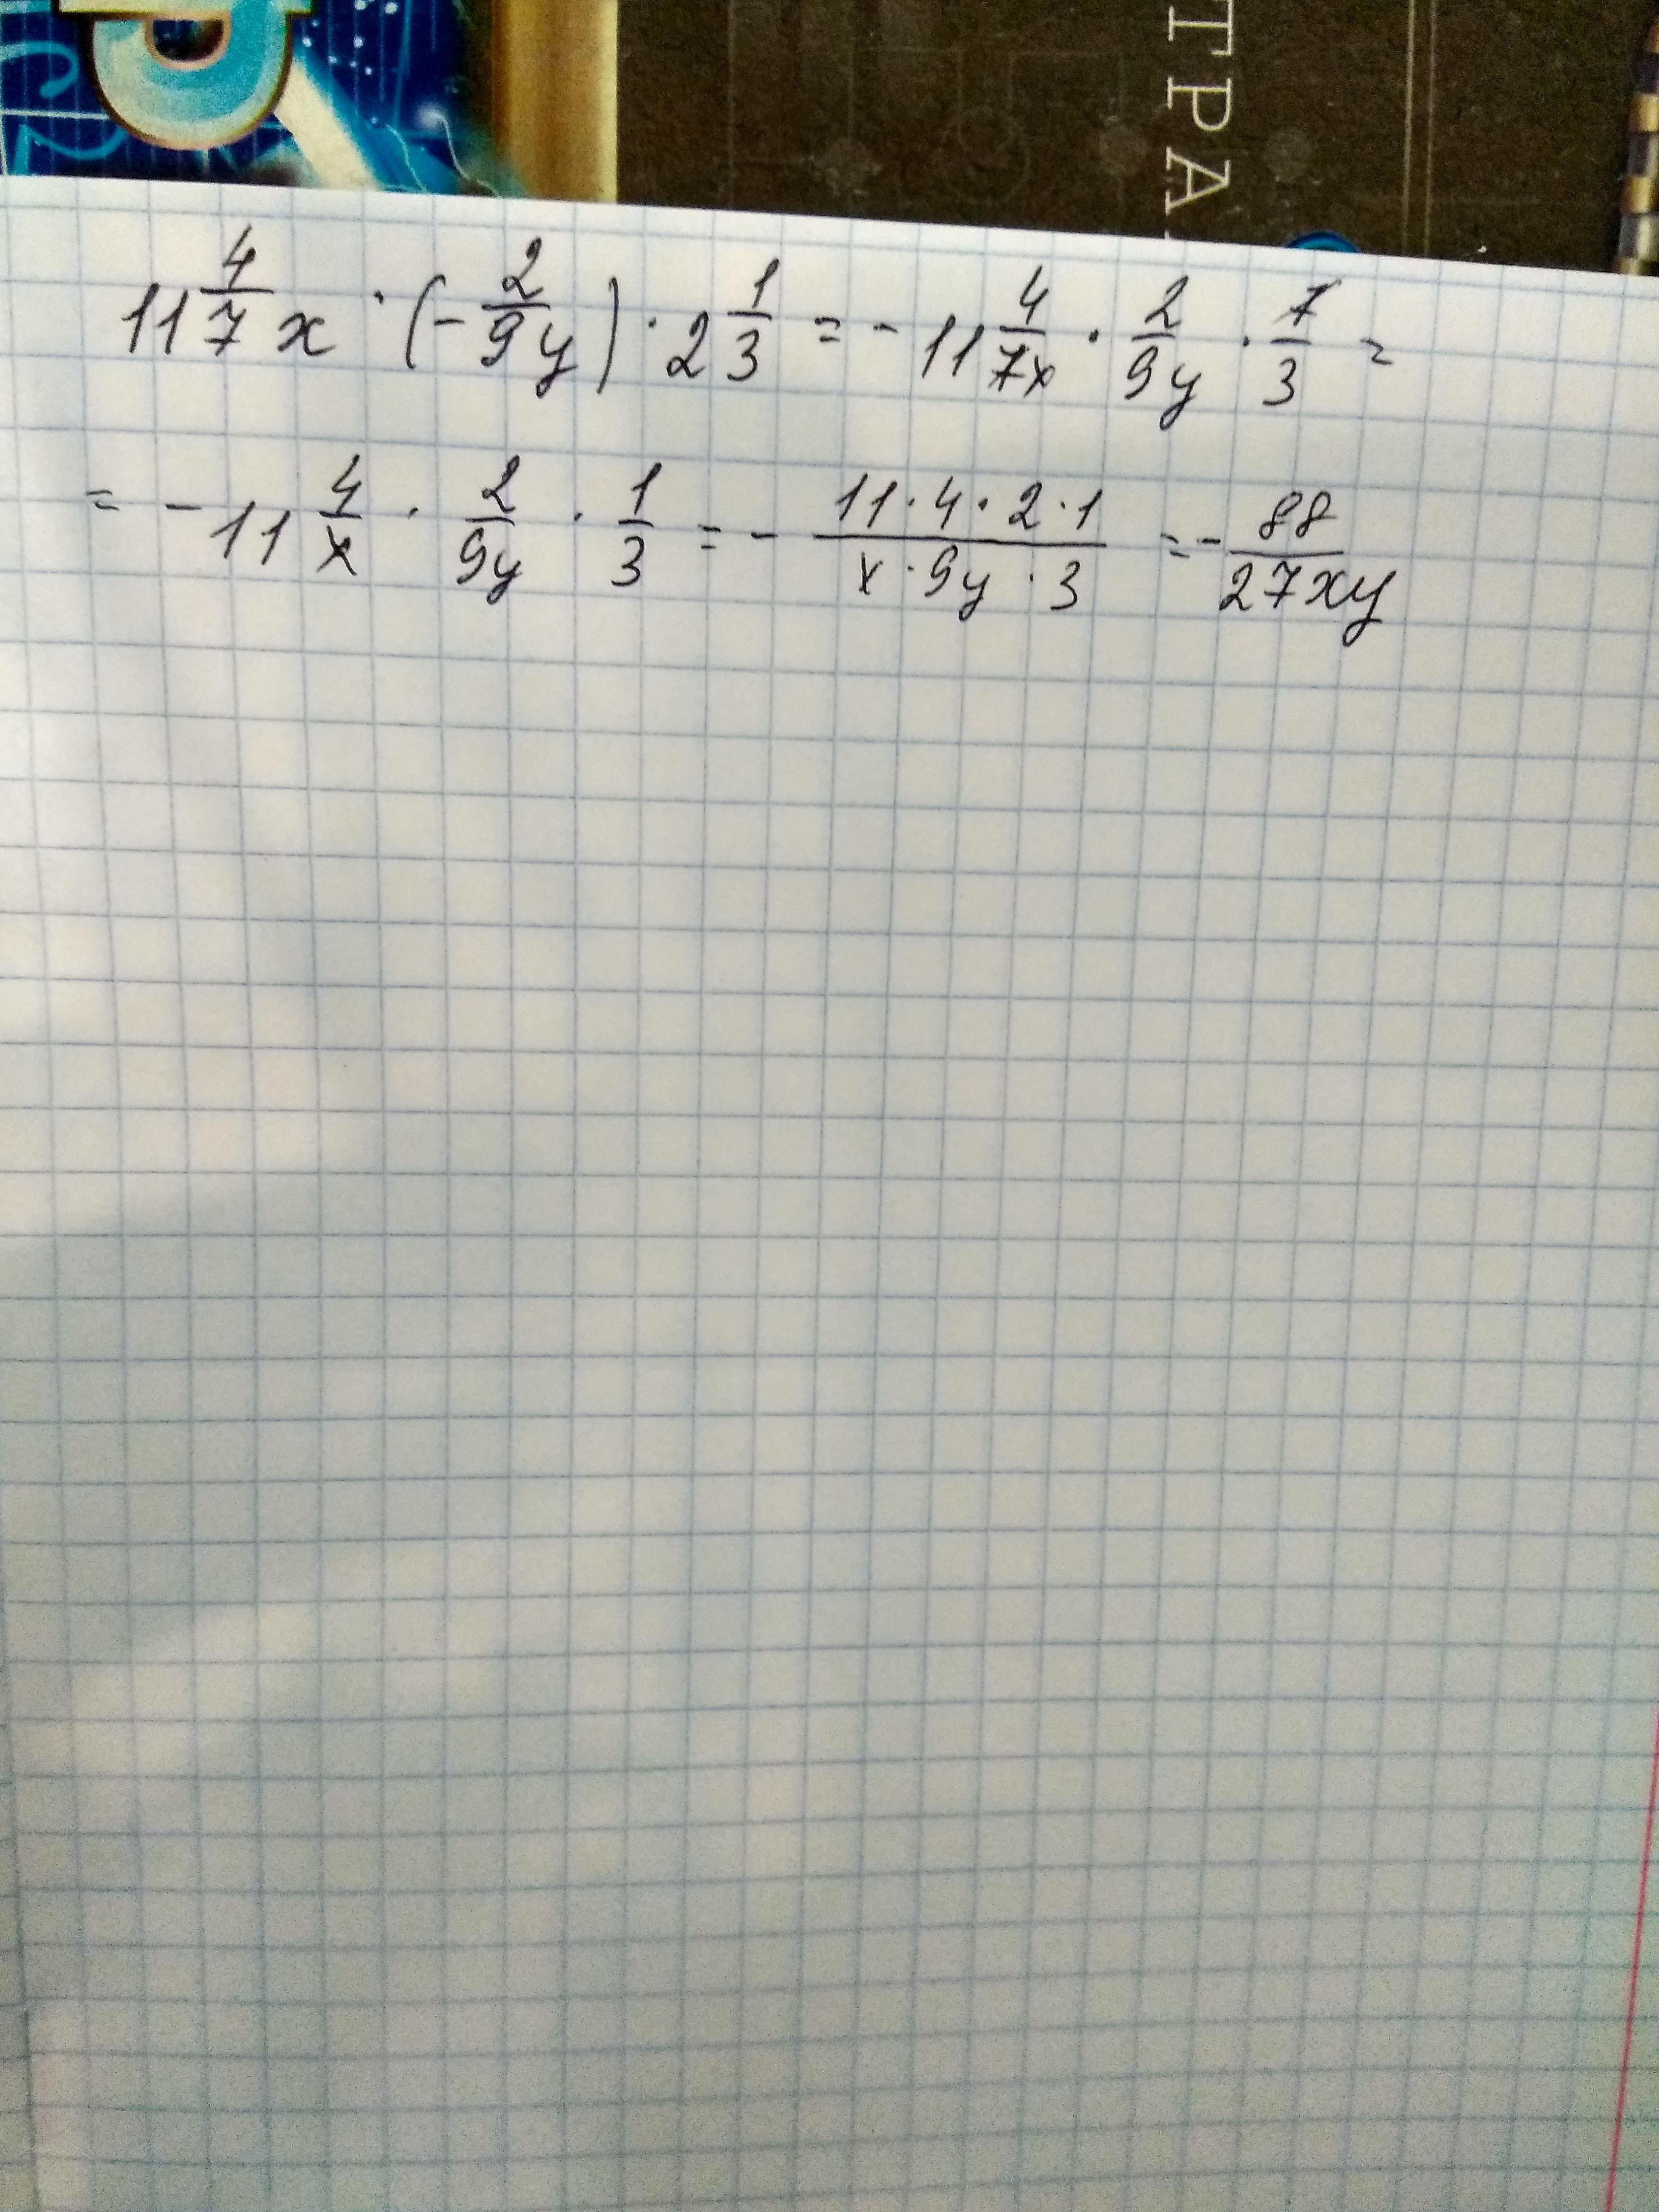 ТРА
11 4/7 x · (- 2/9y) · 2 1/3 = - 11 4/7x · 2/9y · 7/3 =
= - 11 4/x · 2/9y · 1/3 = - 11·4·2·1/x·9y·3 = - 88/27xy